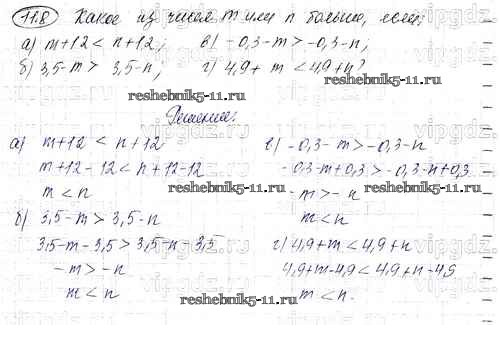 11.8 Какое из чисел m или n больше, если:
а) m+12 < n+12; в) -0,3-m > -0,3-n;
б) 3,5-m > 3,5-n; г) 4,9+m < 4,9+n?
reshebnik5-11.ru reshebnik5-11.ru
Решение:
а) m+12 < n+12
m+12-12 < n+12-12
m < n
б) 3,5-m > 3,5-n
3,5-m-3,5 > 3,5-n-3,5
-m > -n
m < n
в) -0,3-m > -0,3-n
-0,3-m+0,3 > -0,3-n+0,3
-m > -n
m < n
г) 4,9+m < 4,9+n
4,9+m-4,9 < 4,9+n-4,9
m < n.
reshebnik5-11.ru reshebnik5-11.ru
reshebnik5-11.ru
vipgdz